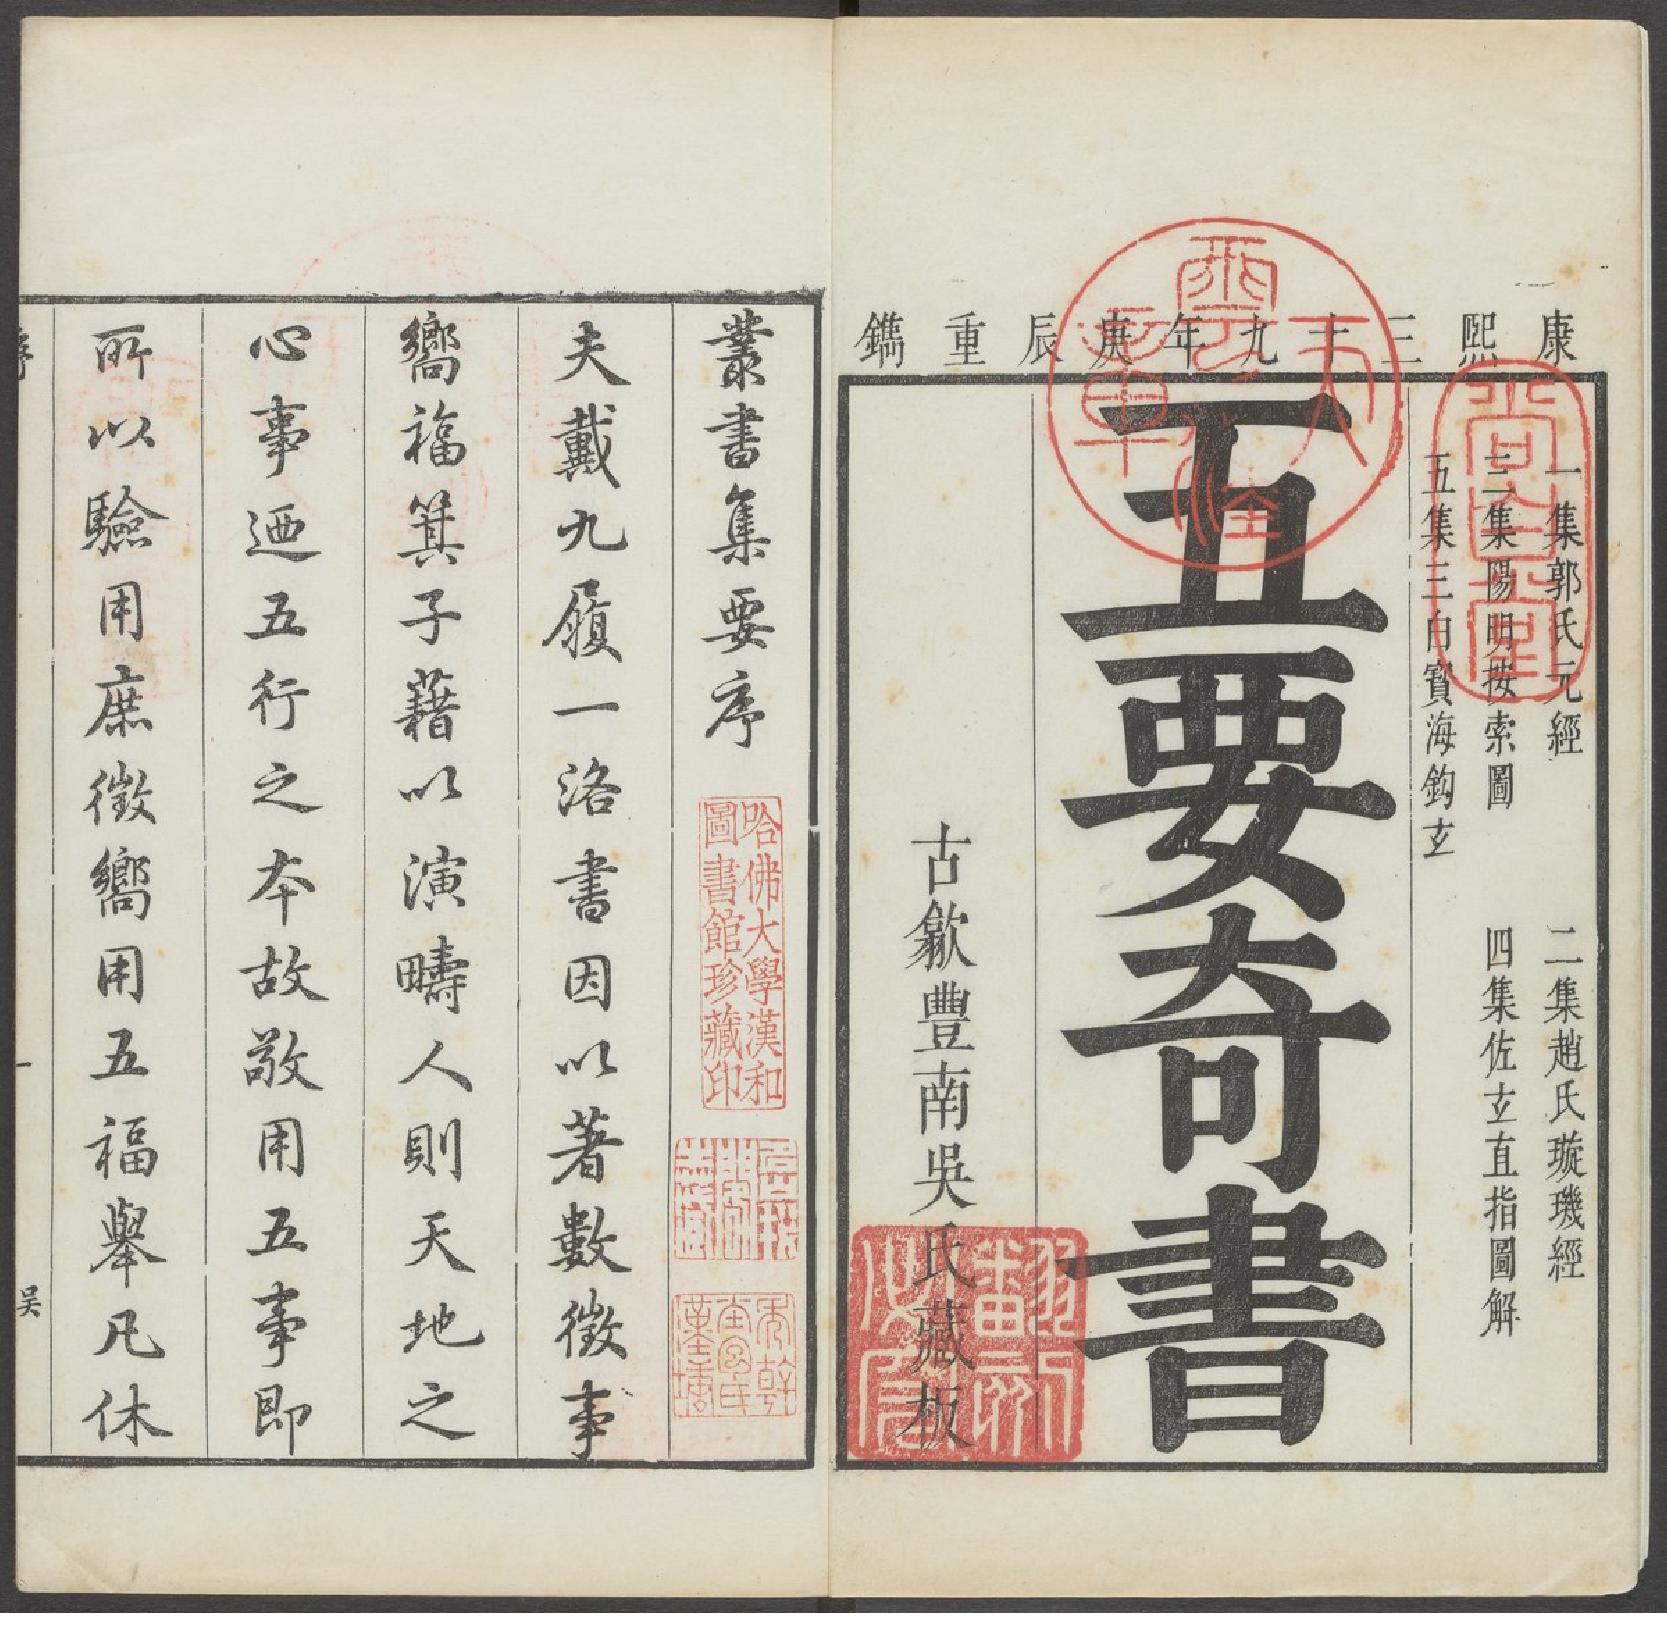 康熙三十九年庚辰重鐫
一集郭氏元經　二集趙氏璇璣經
三集陽明按索圖　四集佐玄直指圖解
五集三白寶海鈎玄
五要奇書
古歙豐南吳氏藏板
尚白堂
叢書集要序
哈佛大學漢和
圖書館珍藏印
夫戴九履一洛書因以著數徵事
嚮福箕子藉以演疇人則天地之
心事迺五行之本故敬用五事即
所以驗用庶徵嚮用五福舉凡休
序
一
吳